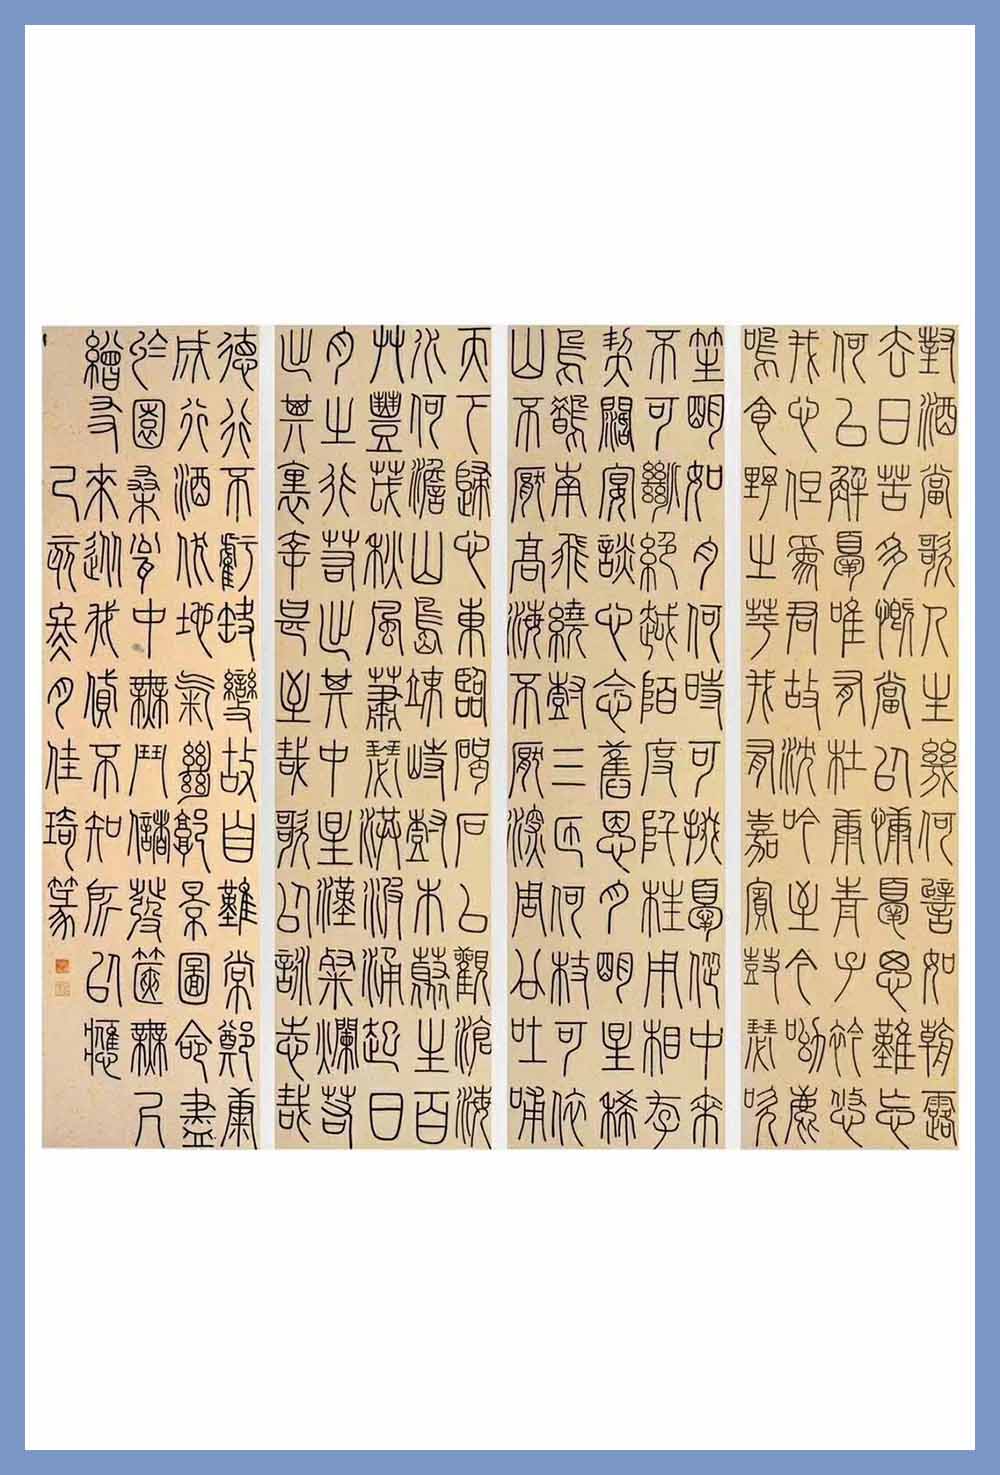 對酒當歌人生幾何譬如朝露
去日苦多慨當以慷憂思難忘
何以解憂唯有杜康青子衿悠
我心但為君故沈吟至今呦鹿
鳴食野之苹我有嘉賓鼓瑟吹
笙明如月何時可掇憂從中來
不可斷絕越陌度阡枉用相存
契闊宴談心念舊恩月明星稀
烏鵲南飛繞樹三匝何枝可依
山不厭高海不厭深周公吐哺
天下歸心東臨碣石以觀滄海
水何澹山島竦峙樹木叢生百
艸豐茂秋風蕭瑟洪波涌起日
月之行若出其中星漢粲爛若
出其裏幸甚至哉歌以詠志哉
德行不虧缺變故自難常鄭康
成行酒伏地氣絕郭景圖命盡
於園桑中無鬥儲發篋無尺
繒友來從我貸不知所以應
己亥寒月佳琦篆